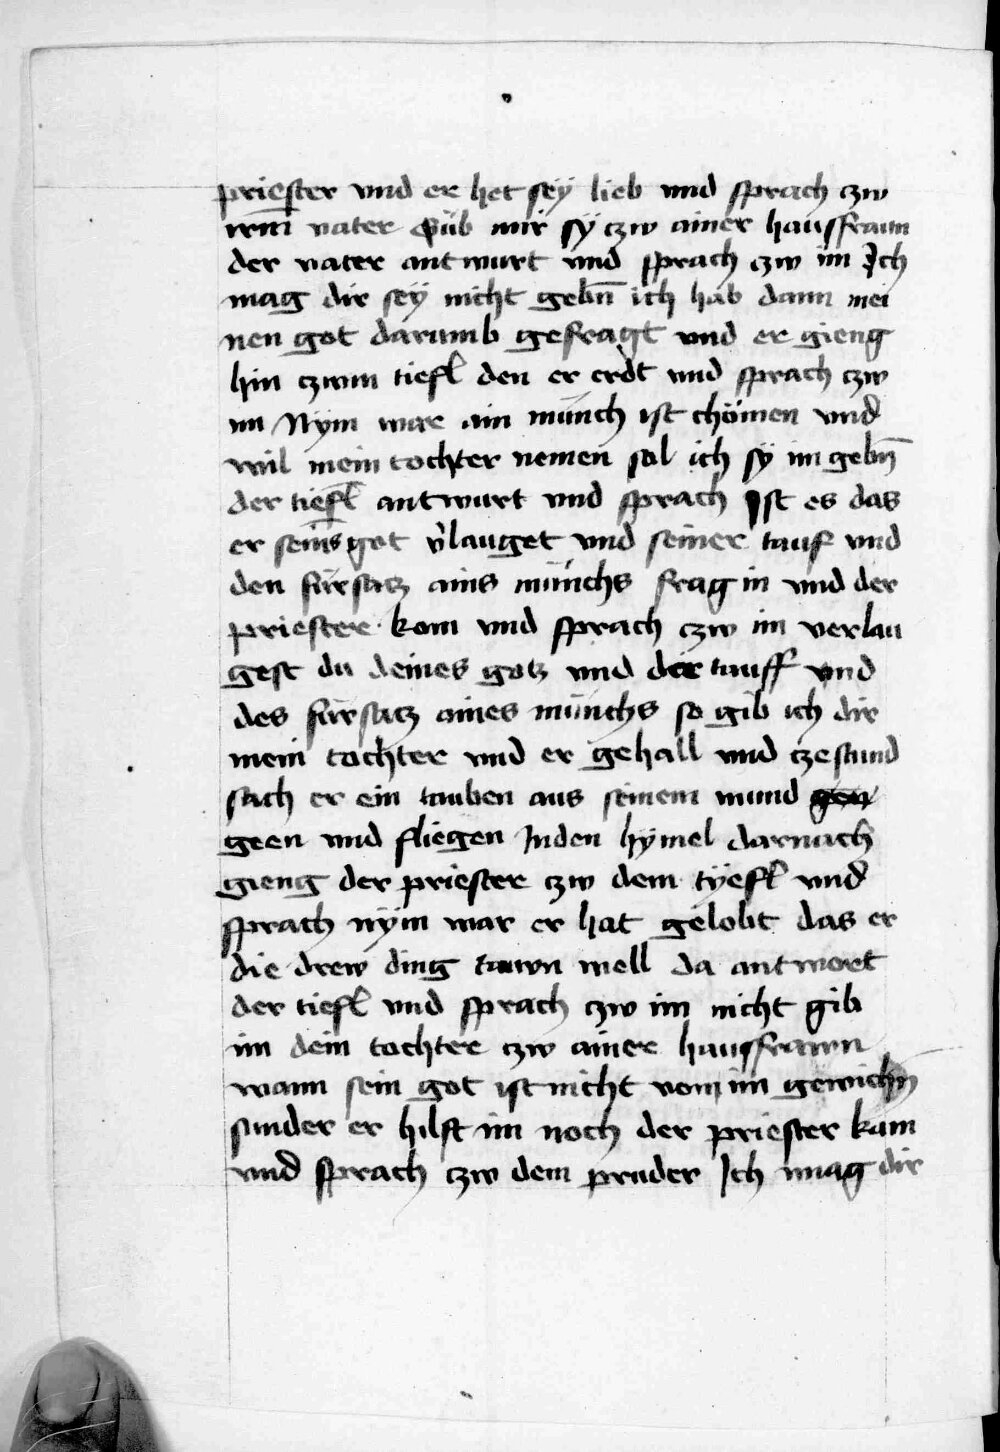 priester vnd er het sÿ lieb vnd sprach czw
irm̄ vater Gib mir sÿ czw ainer hausfraun
der vater antwurt vnd sprach czw im Ich
mag dir seÿ nicht gebn̄ ich hab dann mei
nen got darumb gefragt vnd er gieng
hin czwm tiefl den er erdt vnd sprach czw
im Nÿm war ain münch ist chömen vnd
wil mein tochter nemen sol ich sÿ im gebn̄
der tiefl antwurt vnd sprach Ist es das
er seins got v̓lauget vnd seiner tauf vnd
den fürsatz ains münchs frag in vnd der
priester kom vnd sprach czw im verlau
gest du deines gotz vnd der tauff vnd
des fürsatz aines münchs so gib ich dir
mein tochter vnd er gehall vnd czestund
sach er ein tauben aus seinem mund gen
geen vnd fliegen Inden hÿmel darnach
gieng der priester czw dem tÿefl vnd
sprach nÿm war er hat gelobt das er
die drew ding tawn well da antwort
der tiefl vnd sprach czw im nicht gib
im dein tochter czw ainer hausfrawn
wann sein got ist nicht vom im gewichn
sunder er hilft im noch der priester kam
vnd sprach czw dem pruder Ich mag dir